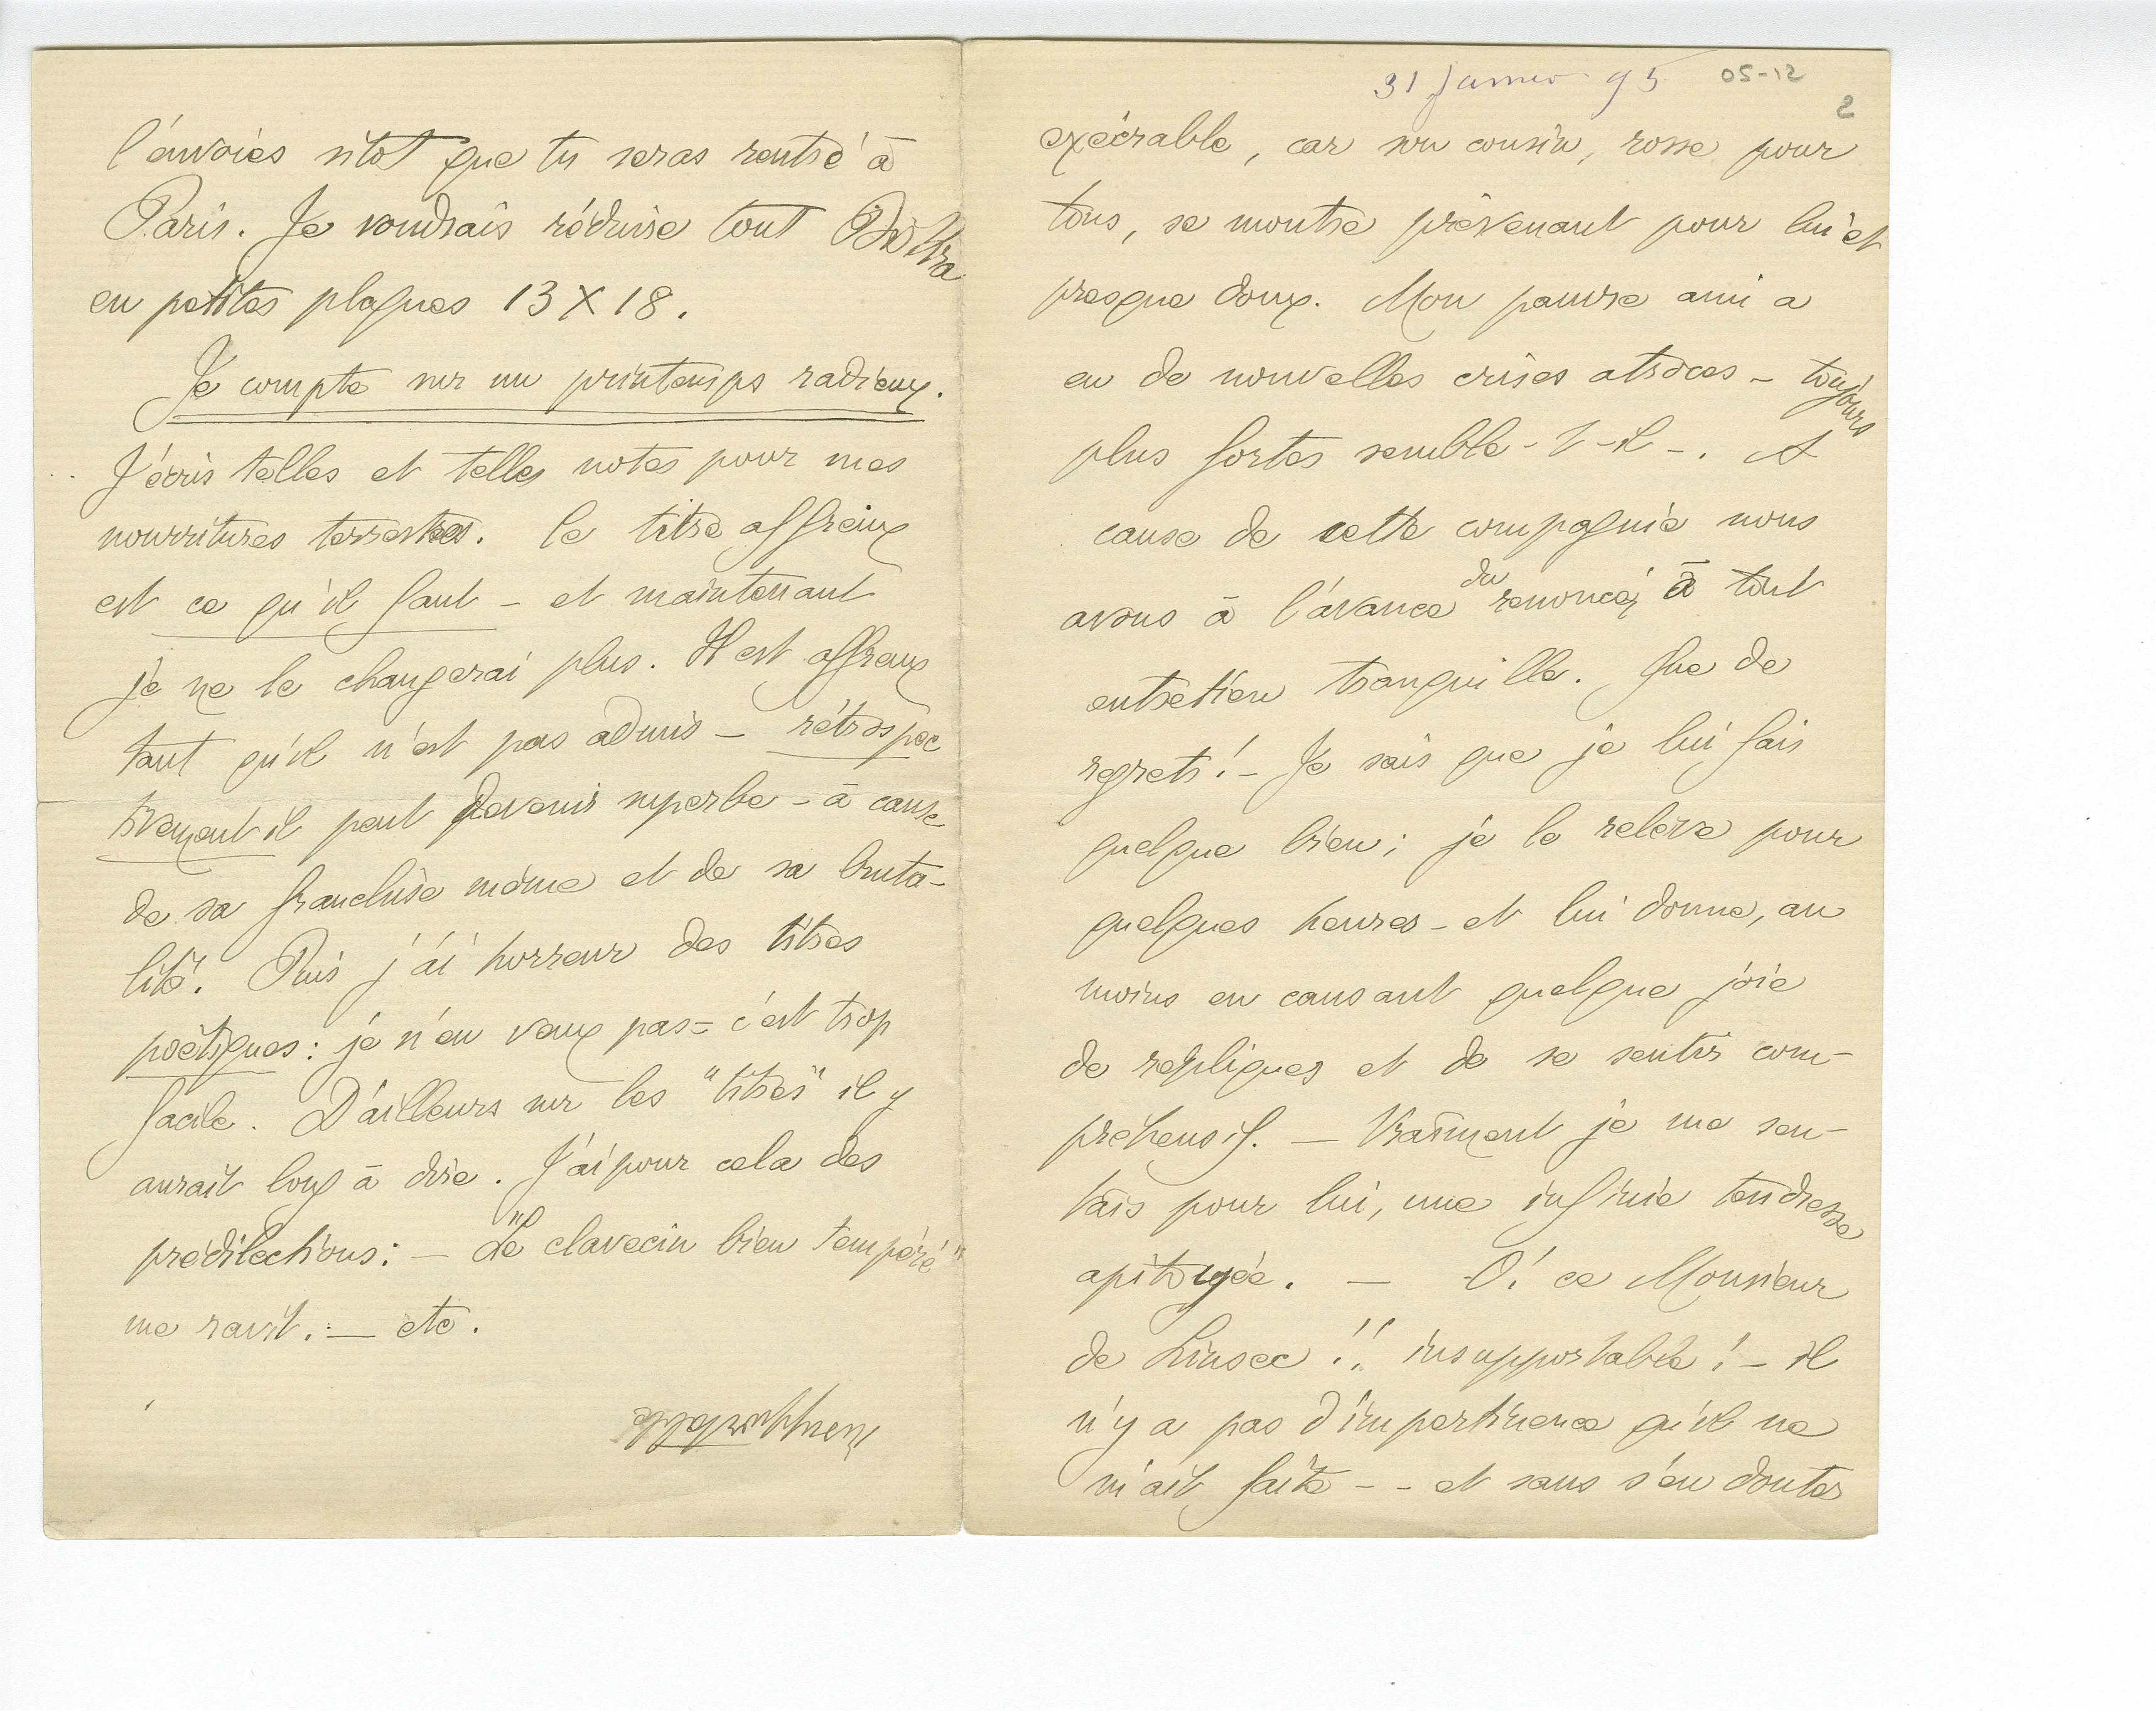 l'envoies sitot que tu seras rentré à
Paris. Je voudrais réduire tout Biskra
en petites plaques 13 X 18.
Je compte sur un printemps radieux.
J'écris telles et telles notes pour mes
nourritures terrestres. le titre affreux
est ce qu'il faut – et maintenant
je ne le changerai plus. Il est affreux
tant qu'il n'est pas admis – rétrospec
tivement il peut devenir superbe – à cause
de sa franchise même et de sa bruta-
lité. Puis j'ai horreur des titres
poëtiques : je n'en veux pas – c'est trop
facile. D'ailleurs sur les "titres" il y
aurait long à dire. J'ai pour cela des
prédilections : – "Le clavecin bien tempéré"
me ravit. – etc.
31 Janvier 95 05-12
2
exécrable, car son cousin, rosse pour
tous, se montre prévenant pour lui et
presque doux. Mon pauvre ami a
eu de nouvelles crises atroces – toujours
plus fortes semble-t-il –. A
cause de cette compagnie nous
avons à l'avance du renoncer à tout
entretien tranquille. Que de
regrets ! – Je sais que je lui fais
quelque bien ; je le relève pour
quelques heures – et lui donne, au
moins en causant quelque joie
de repliques et de se sentir com-
préhensif. – Vraiment je me sen-
tais pour lui, une infinie tendresse
apitoyée. – O! ce Monsieur
de Linsec !! insupportable ! – il
n'y a pas d'impertinence qu'il ne
m'ait faite – – et sans s'en douter